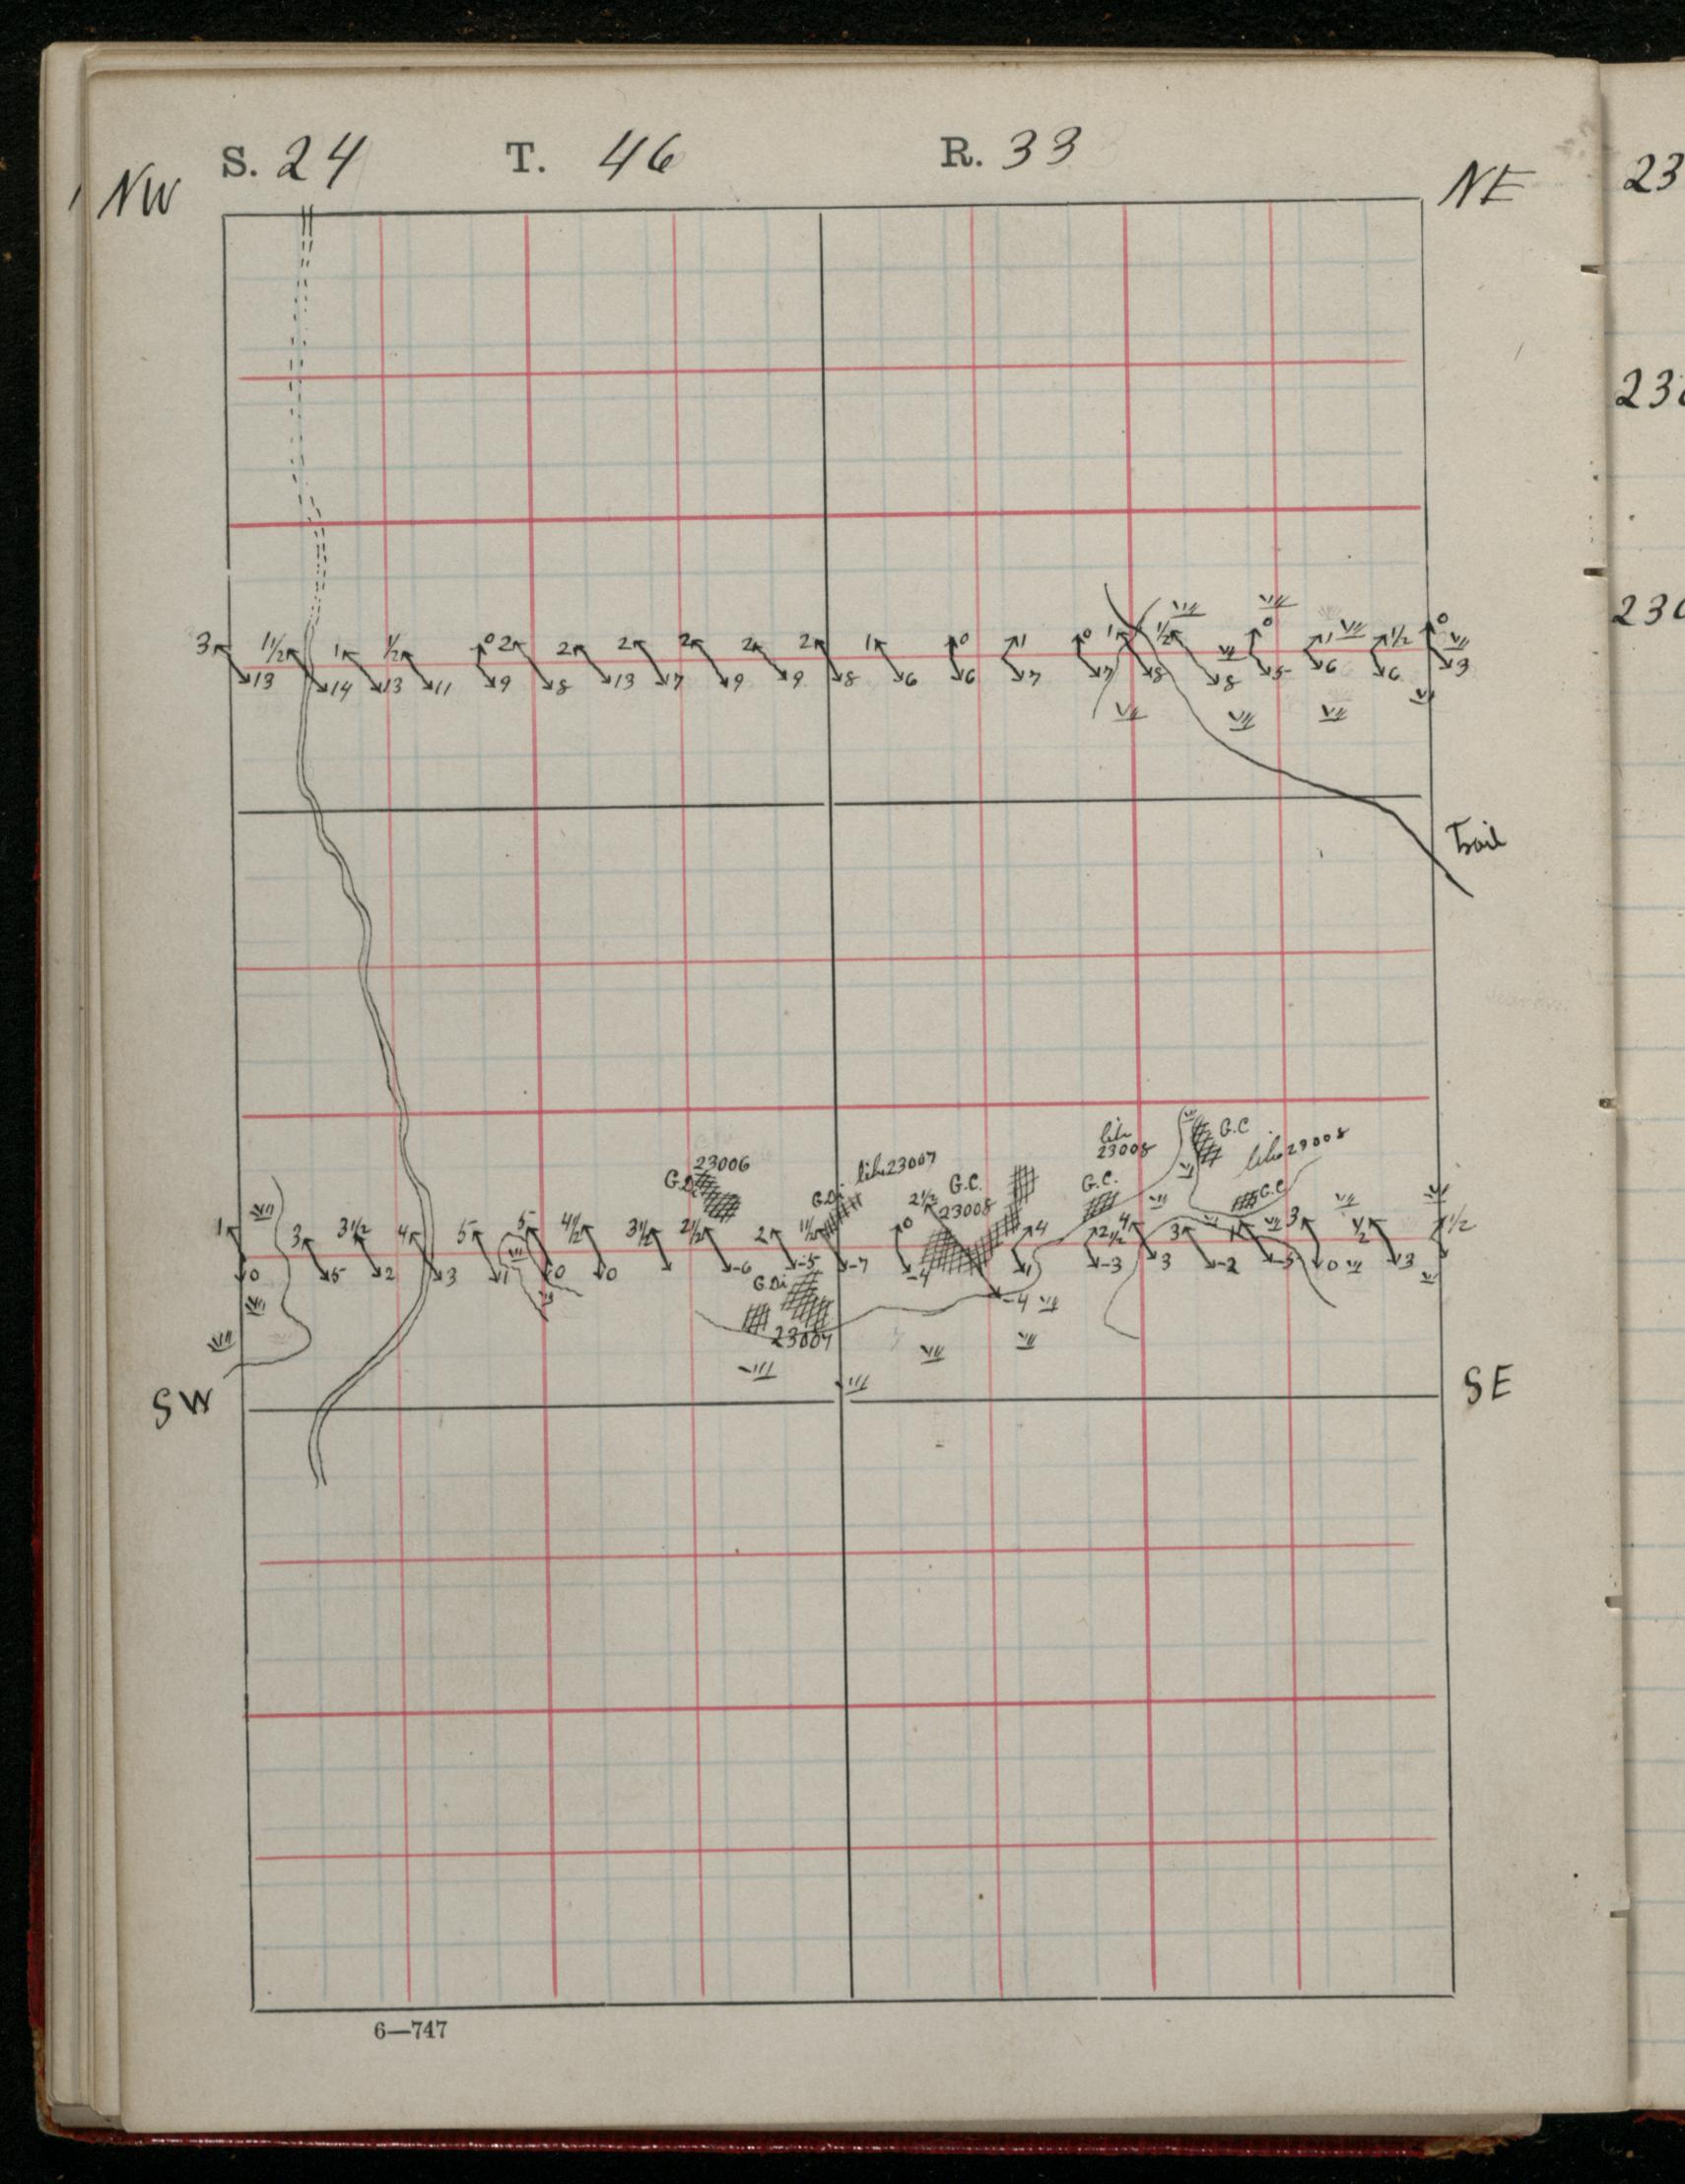 S. 24 T. 46 R. 33
NW NE
23
3 1½ 1 ½ 0 2 2 2 2 2 2 1 0 1 0 1 ½ 0 1 1½ 0
13 14 13 11 9 8 13 7 9 9 8 6 6 7 7 8 8 5 6 6 3
Trail
23006 G.Di
G.Di like 23007
G.C. 23008
like 23008 G.C.
G.C. like 23008
G.C.
1 3 3½ 4 5 5 4½ 3½ 2½ 2 1½ 0 2½ 4 2½ 4 3 1 3 ½ ½
0 5 2 3 1 0 0 -6 -5 -7 -4 -4 1 -3 3 -2 -5 0 3
G.Di 23007
SW SE
6—747